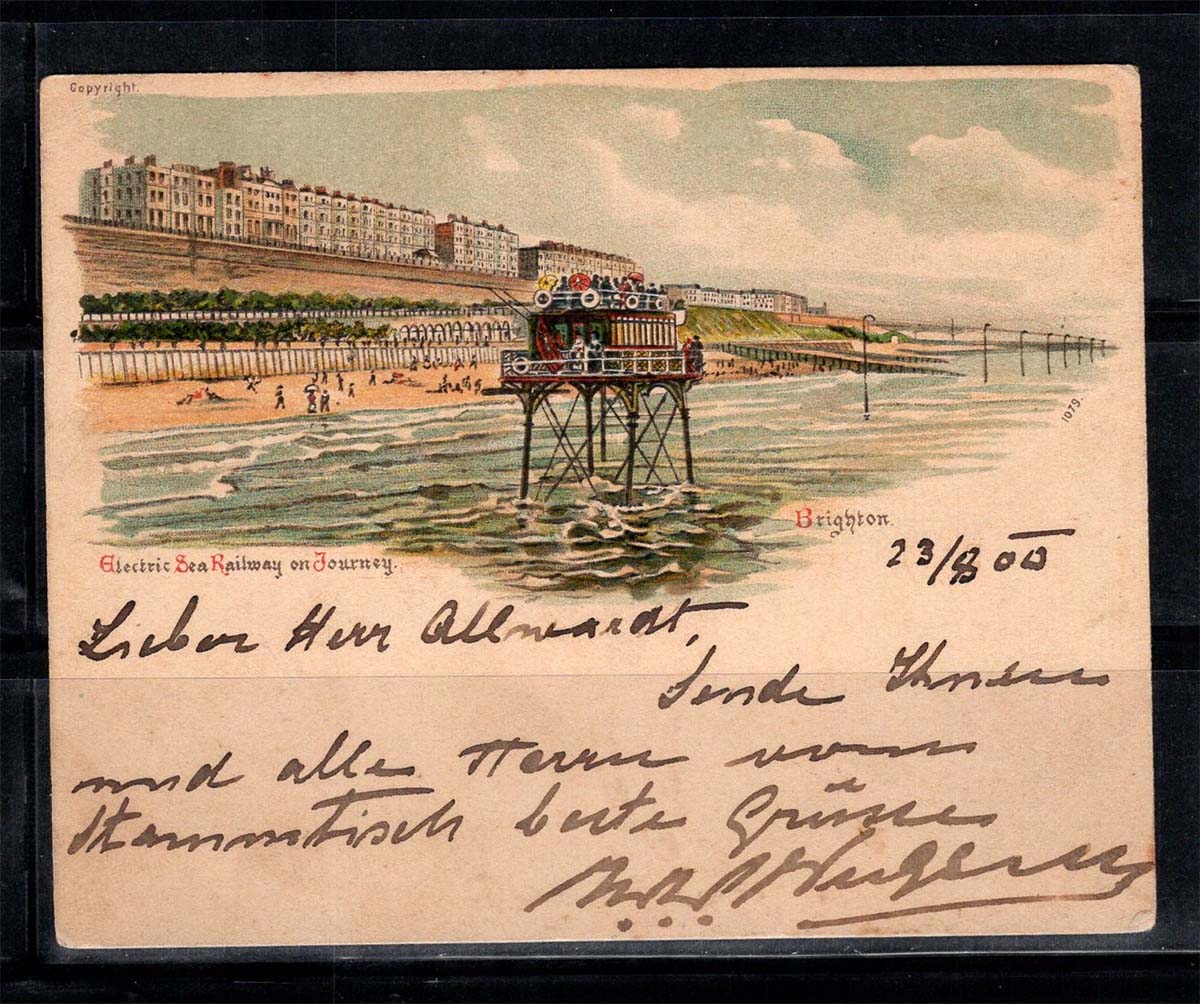 Copyright.
1079.
Brighton.
Electric Sea Railway on Journey.
23/8 00
Lieber Herr Allwardt,
Sende Ihnen
und alle Herrn vom
Stammtisch beste Grüsse